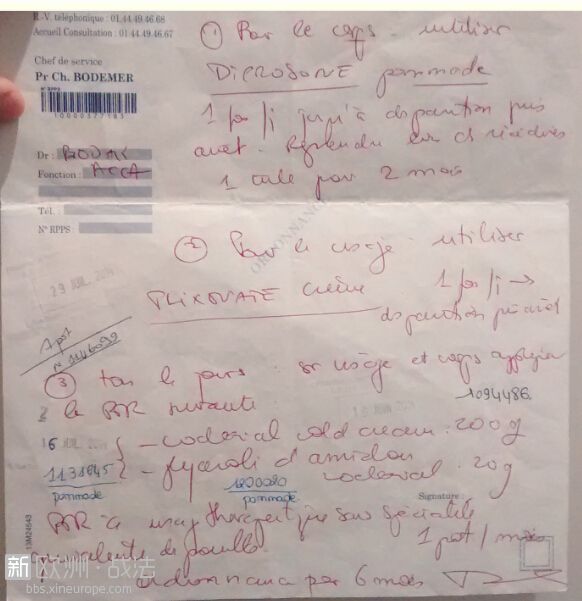 R.-V. téléphonique : 01.44.49.46.68
Accueil Consultation : 01.44.49.46.67
Chef de service
Pr Ch. BODEMER
N° RPPS
10000377183
Dr :
Fonction : ACCA
Tél. :
N° RPPS :
① Pour le corps utiliser
DIPROSONE pommade
1 fois/j jusqu'à disparition puis
arrêt. Reprendre si récidives
1 tube pour 2 mois
ORDONNANCE
② Pour le visage utiliser
FLIXOVATE crème 1 fois/j →
disparition
29 JUIL. 20
1 pot
③ tous les jours : sur visage et corps appliquer
la PR suivante
1094486
16 JUIL 20
- codexial cold cream : 200 g
- glycérolé d'amidon codexial 20 g
1131845
pommade
pommade
PR à usage thérapeutique sans spécialité
équivalente disponible
1 pot / mois
Signature :
13M24643
ordonnance pour 6 mois
新欧洲·战法
bbs.xineurope.com